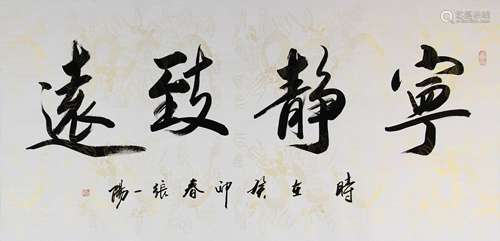 寧静致遠
時在癸卯春張一陽